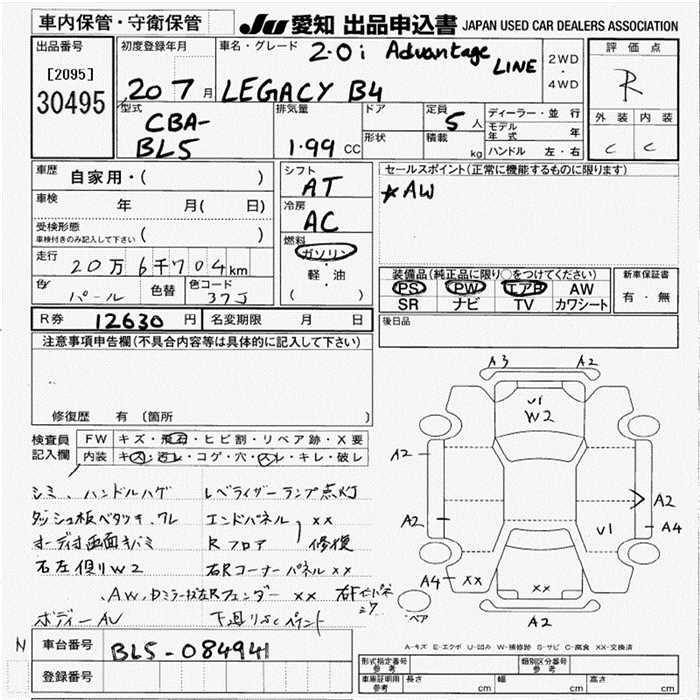 車内保管・守衛保管
JU 愛知 出品申込書 JAPAN USED CAR DEALERS ASSOCIATION
出品番号
[2095]
30495
初度登録年月
20 7 月
車名・グレード
2.0i Advantage LINE
LEGACY B4
2WD
・
4WD
評価点
R
外装 内装
C C
型式
CBA-
BL5
排気量
1.99 CC
ドア
形状
定員
5 人
積載
kg
ディーラー・並行
モデル年式 年
ハンドル 左・右
車歴
自家用・( )
車検
年 月( 日)
受検形態
車検付きのみ記入して下さい ( )
走行
20万6千704km
色
パール
色替
色コード
37J
シフト
AT
冷房
AC
燃料
ガソリン
・
軽・油
( )
セールスポイント(正常に機能するものに限ります)
*AW
装備品(純正品に限り○をつけてください)
PS PW エアB AW
SR ナビ TV カワシート
新車保証書
有・無
R券 12630 円
名変期限 月 日
後日品
注意事項申告欄(不具合内容等は具体的に記入して下さい)
修復歴 有(箇所 )
検査員
記入欄
FW キズ・飛石・ヒビ割・リペア跡・X要
内装 キズ・汚レ・コゲ・穴・スレ・キレ・破レ
シミ、ハンドルハゲ
ダッシュ板ベタツキ、ワレ
オーディオ画面キバミ
右左側リW2
AW、Dミラー
ボディーAU
レベライザーランプ点灯
エンドパネル XX
Rフロア 修復
右Rコーナーパネル XX
左Rフェンダー XX
下廻り
A3 A2
U1
W2
A2
A2
A2
A4
U1
A4 XX
XX
A2
車台番号
BL5-084941
登録番号
N
A-キズ E-エクボ U-凹み W-補修跡 S-サビ C-腐食 XX-交換済
形式指定番号
参考
類別区分番号
参考
車庫証明用
参考
長さ cm 幅 cm 高さ cm